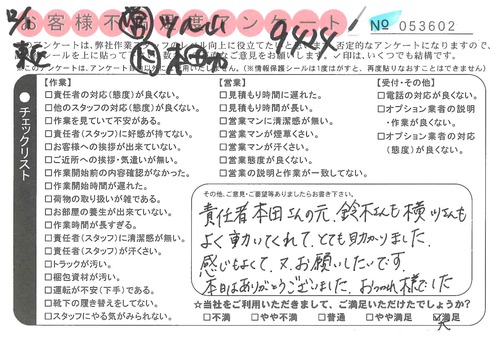 12/1
お客様不満足度アンケート
№ 053602
9414
本アンケートは、弊社作業スタッフのレベル向上に役立てたいと思います。否定的なアンケートになりますので、
シールを上に貼って
な意見をお願いします。✓印は、いくつでも結構です。
(※情報保護シールは1度はがすと、再度貼りなおすことはできません)
●チェックリスト
【作業】
□責任者の対応(態度)が良くない。
□他のスタッフの対応(態度)が良くない。
□作業を見ていて不安がある。
□責任者(スタッフ)に好感が持てない。
□お客様への挨拶が出来ていない。
□ご近所への挨拶・気遣いが無い。
□作業開始前の内容確認がなかった。
□作業開始時間が遅れた。
□荷物の取り扱いが雑である。
□お部屋の養生が出来ていない。
□作業時間が長すぎる。
□責任者(スタッフ)に清潔感が無い。
□責任者(スタッフ)が汗くさい。
□トラックが汚い。
□梱包資材が汚い。
□運転が不安(下手)である。
□靴下の履き替えをしてない。
□スタッフにやる気がみられない。
【営業】
□見積もり時間に遅れた。
□見積もり時間が長い。
□営業マンに清潔感が無い。
□営業マンが煙草くさい。
□営業マンが汗くさい。
□営業態度が良くない。
□営業の説明と作業が一致してない。
【受付・その他】
□電話の対応が良くない。
□オプション業者の説明・作業が良くない。
□オプション業者の対応(態度)が良くない。
その他、ご意見・ご要望等ありましたらお書き下さい。
責任者本田さんの元、鈴木さんも横ツさんも
よく動いてくれて、とても助かりました。
感じもよくて、又、お願いしたいです。
本日はありがとうございました。おつかれ様でした
☆当社をご利用いただきまして、ご満足いただけたでしょうか?
□不満 □やや不満 □普通 □やや満足 ☑満足
大